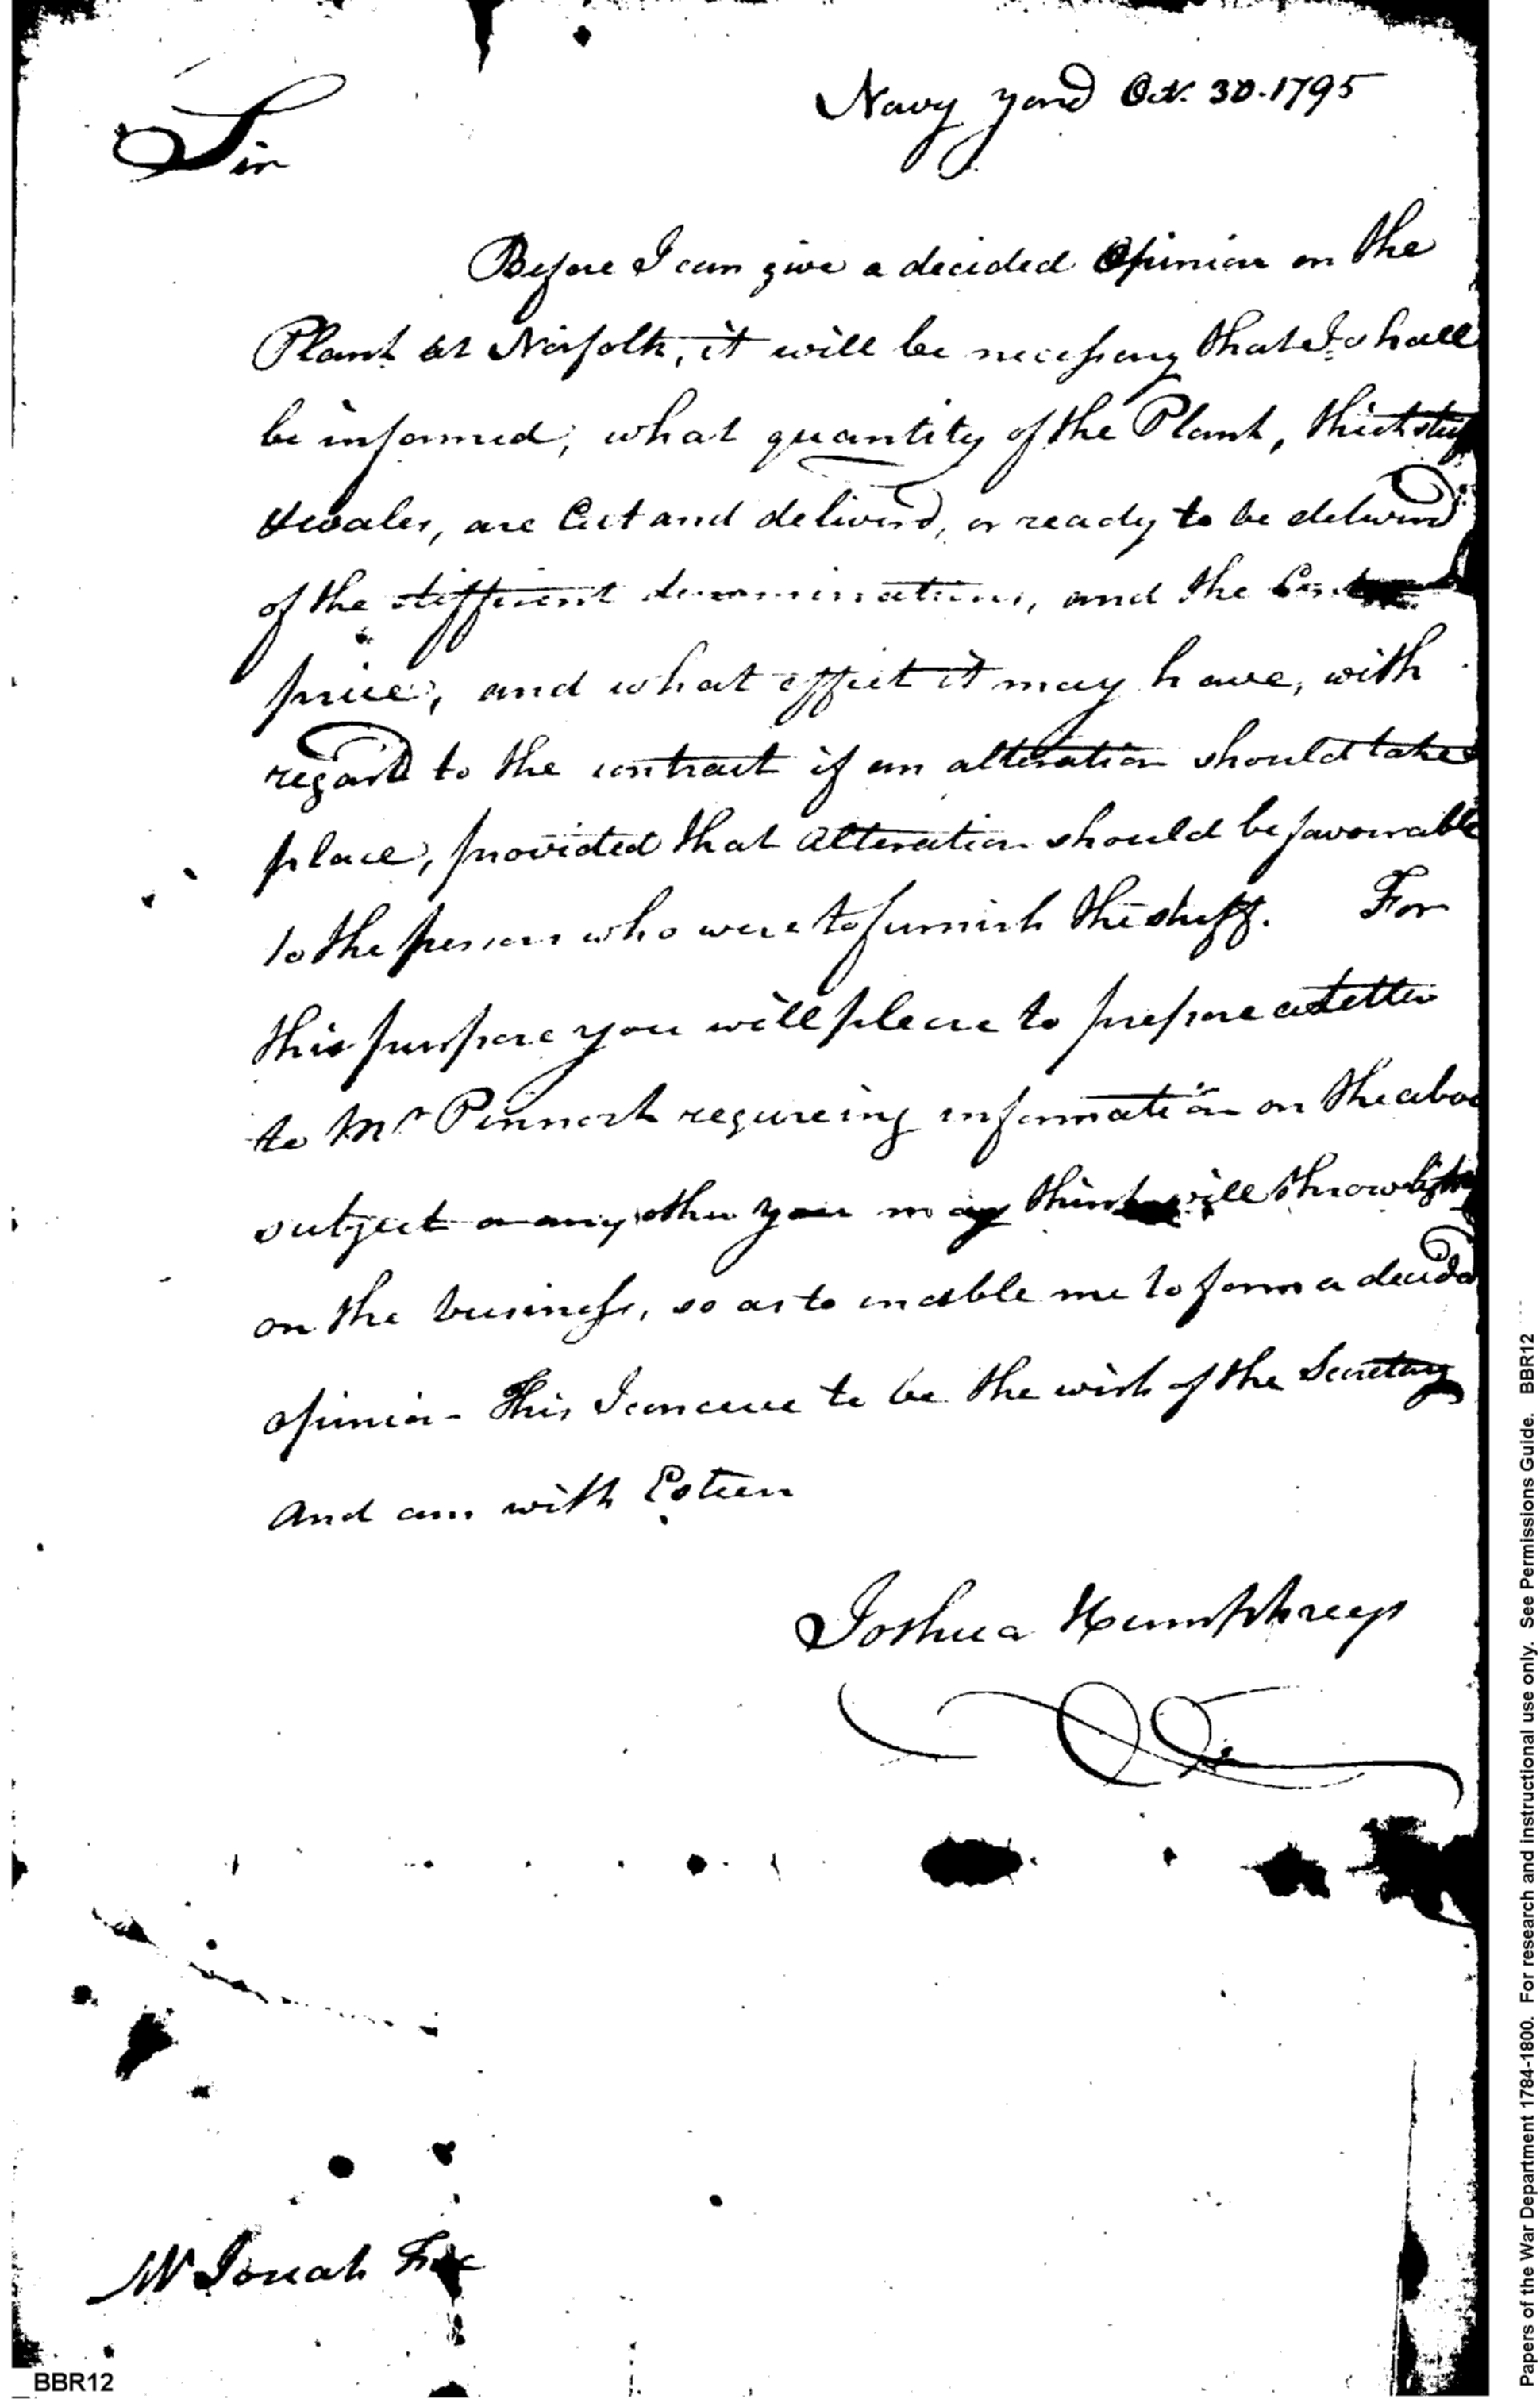 Navy yard Oct. 30. 1795
Sir
Before I can give a decided Opinion on the
Plank at Norfolk, it will be necessary that I shall
be informed, what quantity of the Plank, thickstuff
& wales, are Cut and deliverd, or ready to be deliverd
of the different denominations, and the
price, and what effect it may have, with
regard to the contract if an alteration should take
place, provided that alteration should be favourable
to the person who were to furnish the stuff. For
this purpose you will please to prepare a Letter
to Mr Pennock requireing information on the abov
subject or any other you may think will throw light
on the business, so as to enable me to form a decided
opinion - This I conceive to be the wish of the Secretary
and am with Esteem
Joshua Humphreys
Mr Josiah Fox
BBR12
Papers of the War Department 1784-1800. For research and instructional use only. See Permissions Guide. BBR12